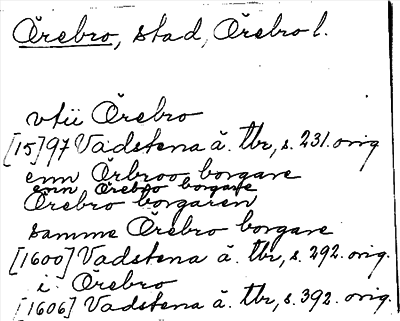 Örebro, stad, Örebro l.
vtii Örebro
[15]97 Vadstena ä. tbr, s. 231. orig
enn Örbroo borgare
enn Örebro borgare
Örebro borgaren
samme Örebro borgare
[1600] Vadstena ä. tbr, s. 292. orig.
i Örebro
[1606] Vadstena ä. tbr, s. 392. orig.